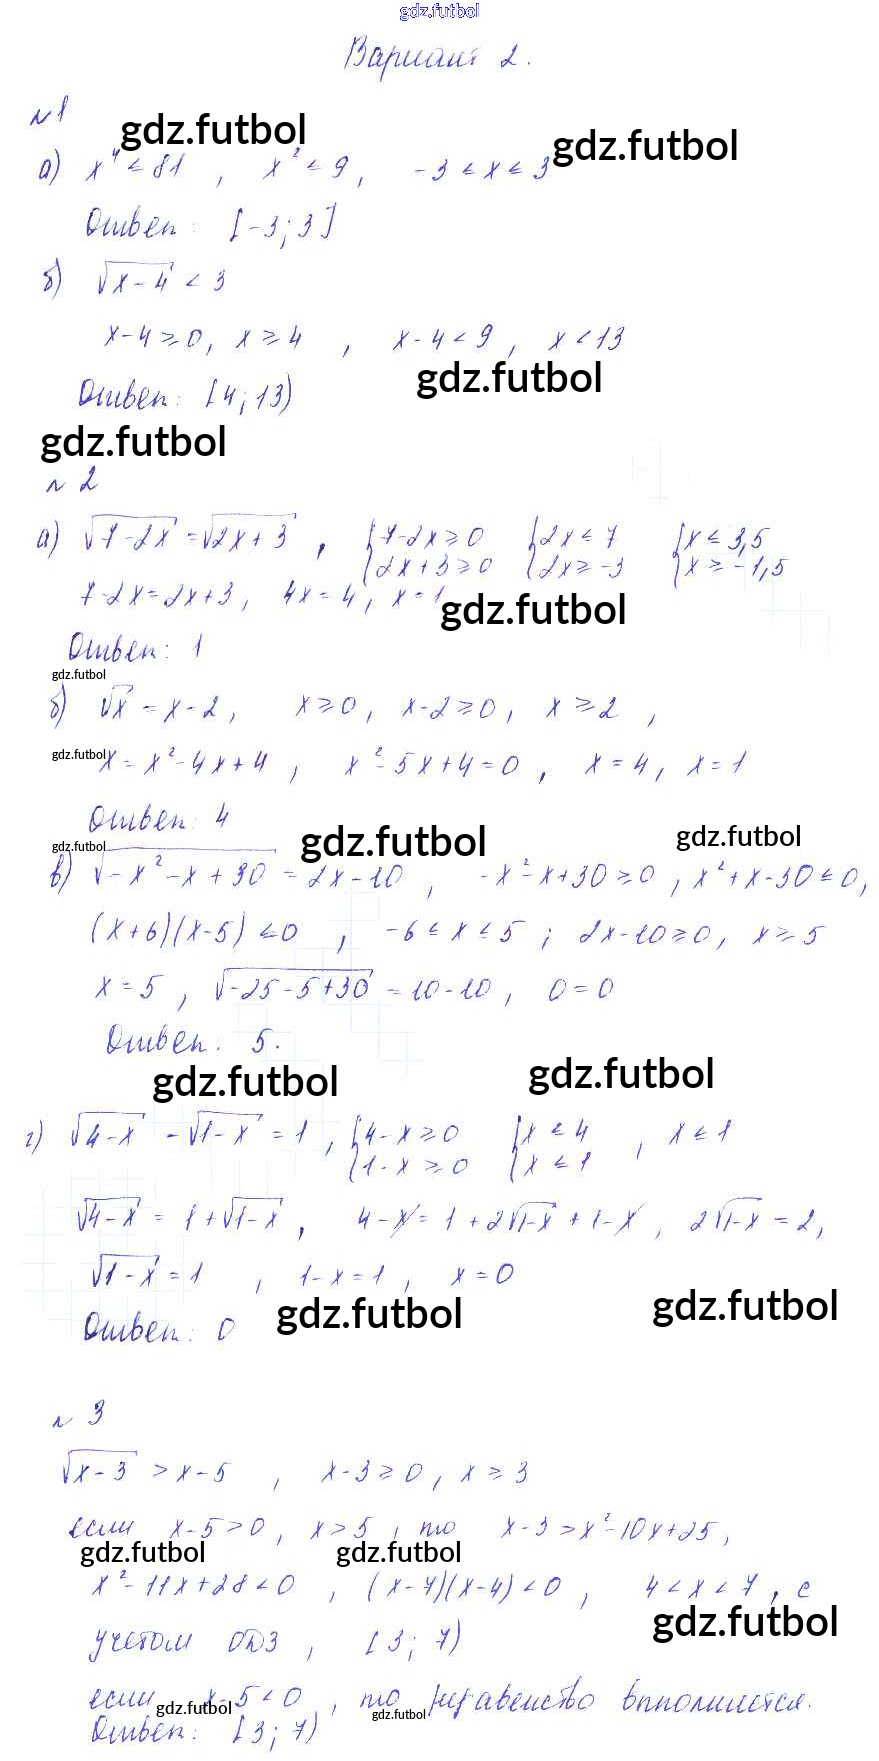 gdz.futbol
Вариант 2.
№1
gdz.futbol
gdz.futbol
а) x⁴ ≤ 81 , x² ≤ 9, -3 ≤ x ≤ 3
Ответ: [-3; 3]
б) √(x-4) < 3
x-4 ≥ 0, x ≥ 4 , x-4 < 9, x < 13
gdz.futbol
Ответ: [4; 13)
gdz.futbol
№ 2
а) √(7-2x) = √(2x+3) , {7-2x ≥ 0 {2x ≤ 7 {x ≤ 3,5
{2x+3 ≥ 0 {2x ≥ -3 {x ≥ -1,5
7-2x = 2x+3, 4x = 4, x = 1
gdz.futbol
Ответ: 1
gdz.futbol
б) √x = x-2, x ≥ 0, x-2 ≥ 0, x ≥ 2 ,
gdz.futbol
x = x²-4x+4 , x²-5x+4 = 0 , x = 4, x = 1
Ответ: 4
gdz.futbol
gdz.futbol
gdz.futbol
в) √(-x²-x+30) = 2x-10 , -x²-x+30 ≥ 0 , x²+x-30 ≤ 0,
(x+6)(x-5) ≤ 0 , -6 ≤ x ≤ 5 ; 2x-10 ≥ 0, x ≥ 5
x = 5 , √(-25-5+30) = 10-10, 0 = 0
Ответ: 5.
gdz.futbol
gdz.futbol
г) √(4-x) - √(1-x) = 1 , {4-x ≥ 0 {x ≤ 4 , x ≤ 1
{1-x ≥ 0 {x ≤ 1
√(4-x) = 1+√(1-x) , 4-x = 1+2√(1-x)+1-x , 2√(1-x) = 2,
√(1-x) = 1 , 1-x = 1 , x = 0
gdz.futbol
gdz.futbol
Ответ: 0
№ 3
√(x-3) > x-5 , x-3 ≥ 0, x ≥ 3
если x-5 > 0, x > 5 , то x-3 > x²-10x+25,
gdz.futbol
gdz.futbol
x²-11x+28 < 0 , (x-7)(x-4) < 0 , 4 < x < 7 , с
gdz.futbol
учетом ОДЗ , [3; 7)
если x-5 < 0 , то неравенство выполняется.
gdz.futbol
gdz.futbol
Ответ: [3; 7)